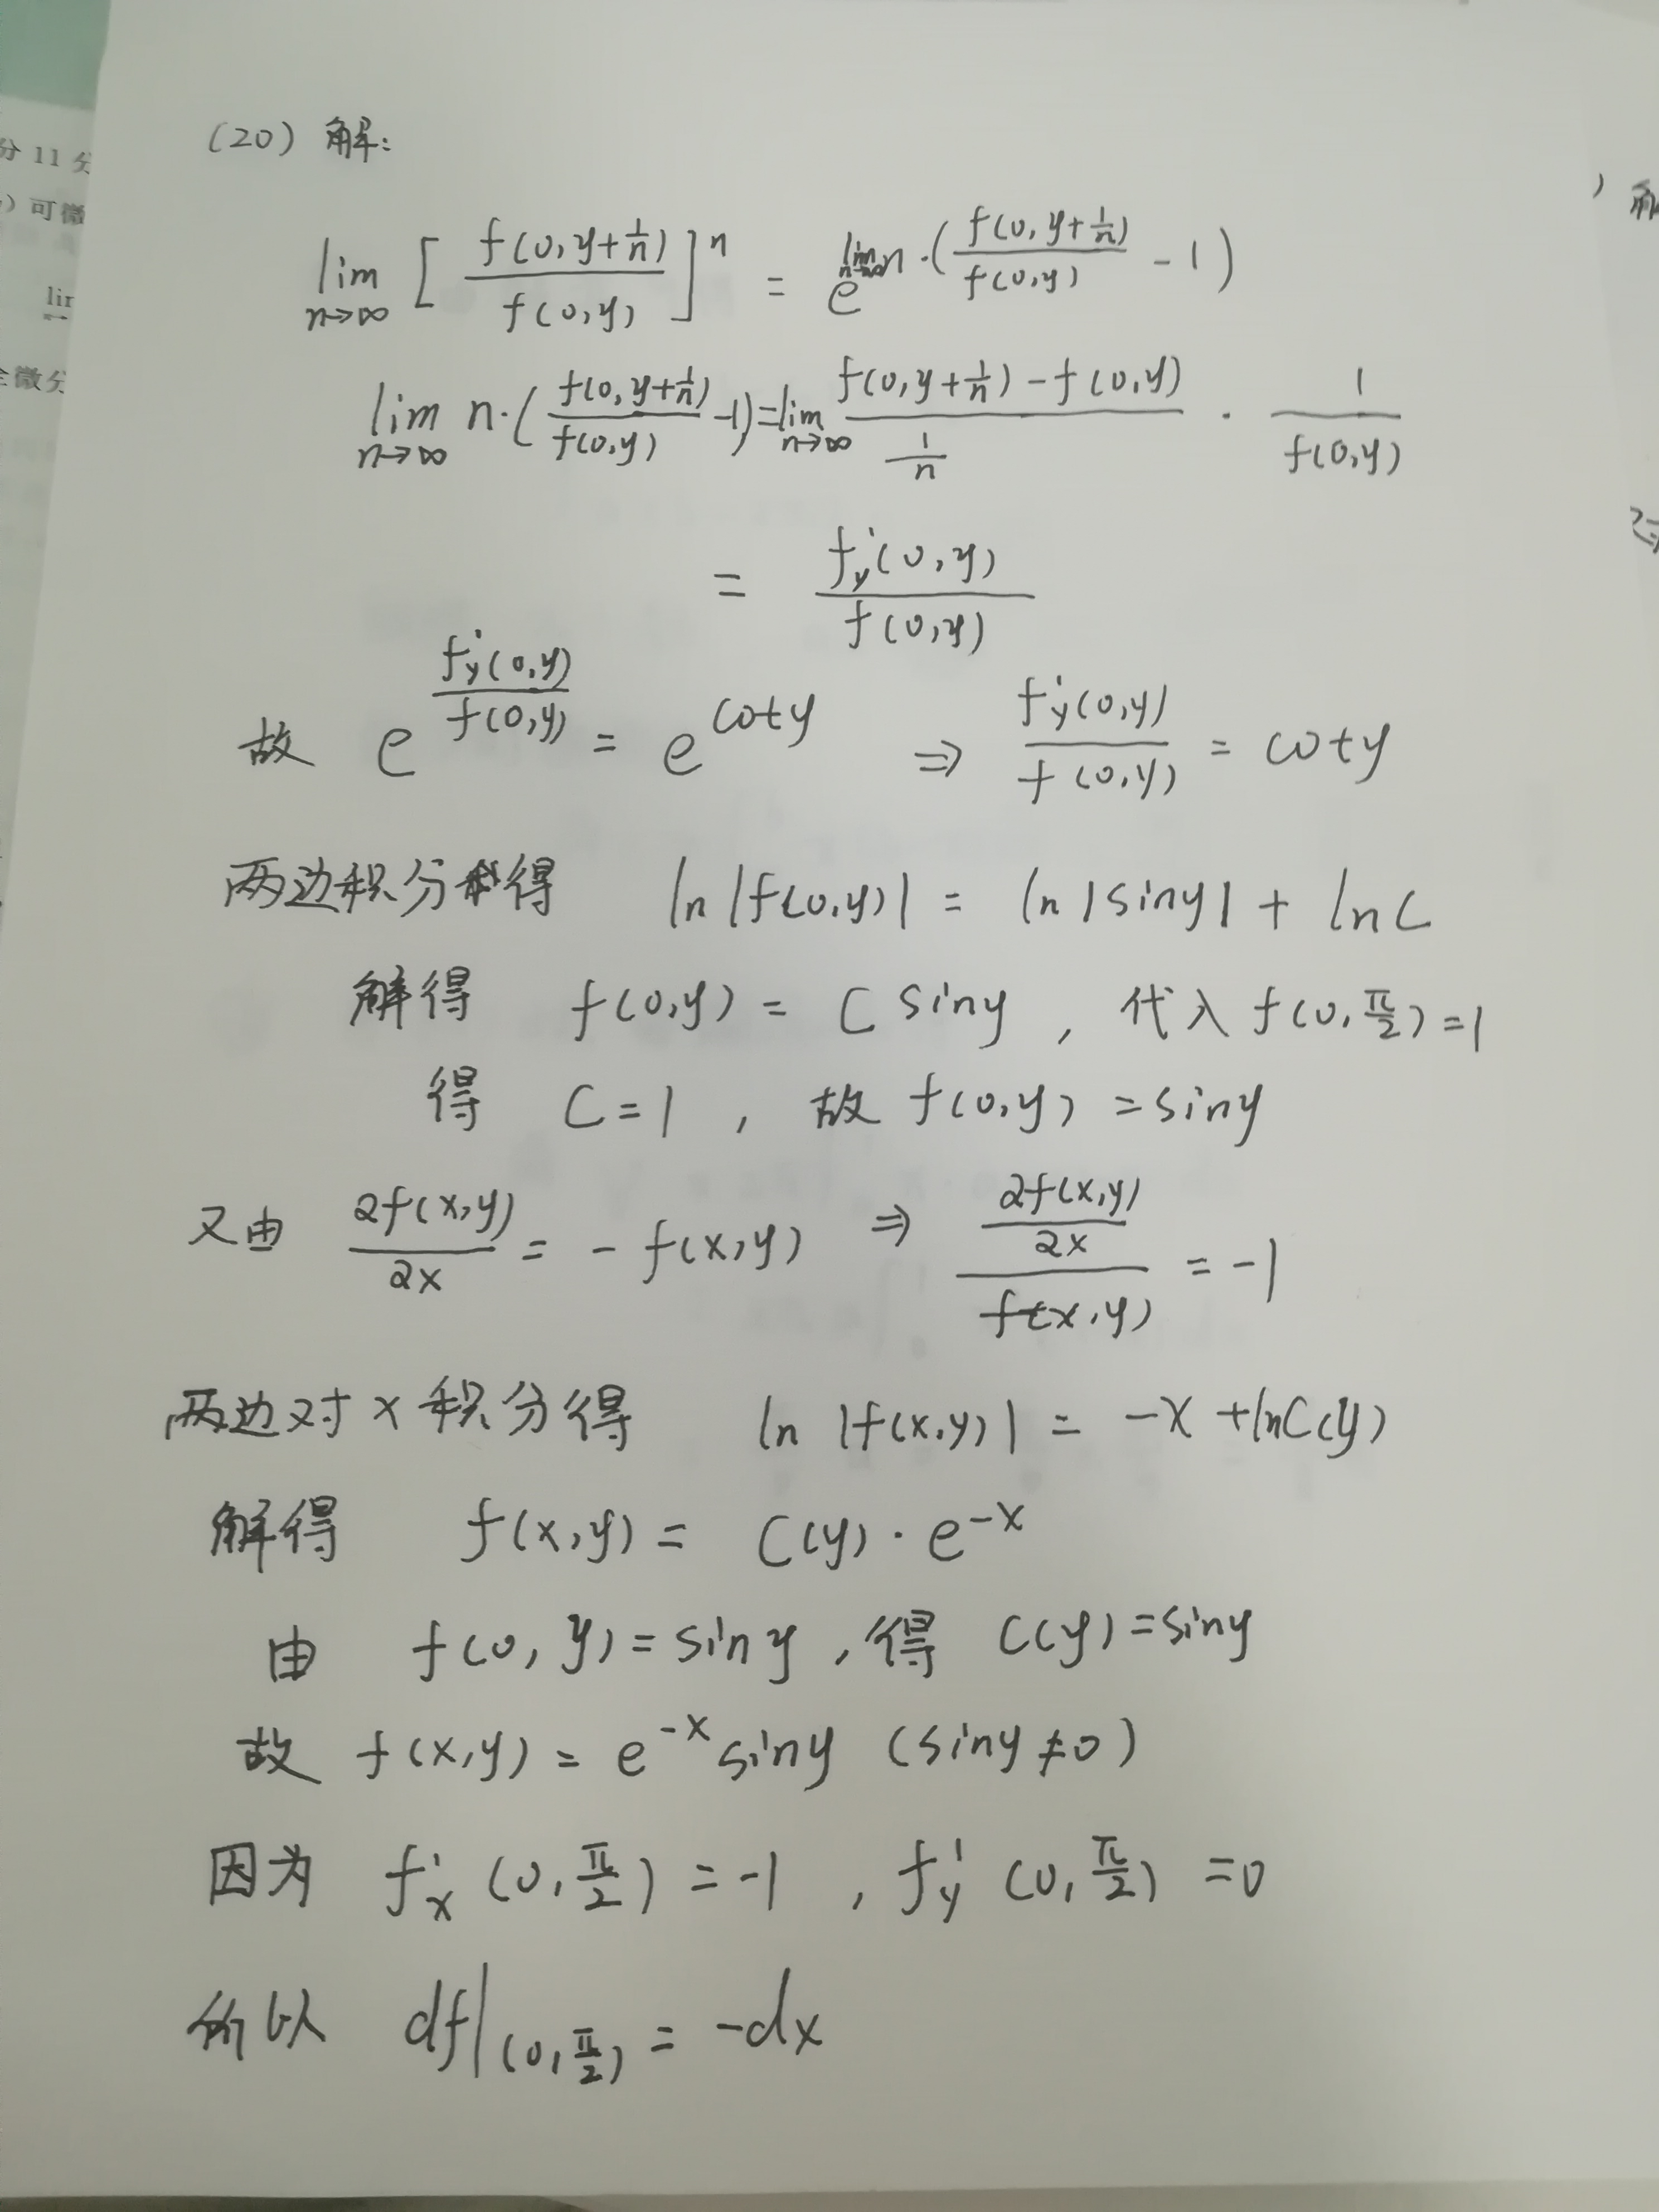 分 11 分
）可微
lim
全微分
(20) 解:
lim n→∞ [ f(0,y+1/n) / f(0,y) ]^n = e^{lim n→∞ n·( f(0,y+1/n) / f(0,y) - 1 )}
lim n→∞ n·( f(0,y+1/n) / f(0,y) - 1 ) = lim n→∞ ( f(0,y+1/n) - f(0,y) ) / (1/n) · 1 / f(0,y)
= f'y(0,y) / f(0,y)
故 e^{f'y(0,y) / f(0,y)} = e^{coty} ⇒ f'y(0,y) / f(0,y) = coty
两边积分得 ln|f(0,y)| = ln|siny| + lnC
解得 f(0,y) = C siny , 代入 f(0,π/2) = 1
得 C = 1 , 故 f(0,y) = siny
又由 ∂f(x,y) / ∂x = - f(x,y) ⇒ ( ∂f(x,y) / ∂x ) / f(x,y) = -1
两边对 x 积分得 ln |f(x,y)| = -x + lnC(y)
解得 f(x,y) = C(y) · e^{-x}
由 f(0,y) = siny , 得 C(y) = siny
故 f(x,y) = e^{-x} siny (siny ≠ 0)
因为 f'x (0,π/2) = -1 , f'y (0,π/2) = 0
所以 df|(0,π/2) = -dx